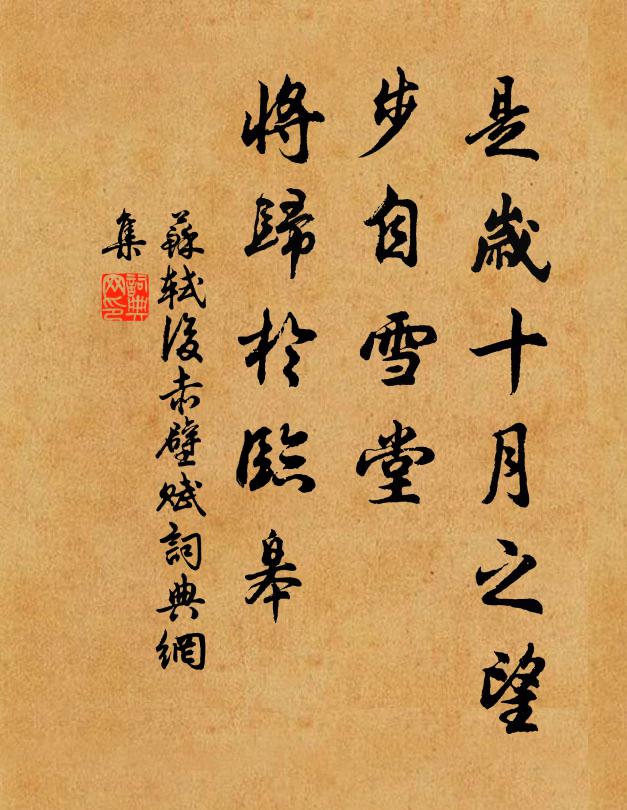 是歲十月之望
步自雪堂
將歸於臨皋
蘇軾後赤壁賦詞典網
集
詞典
网印